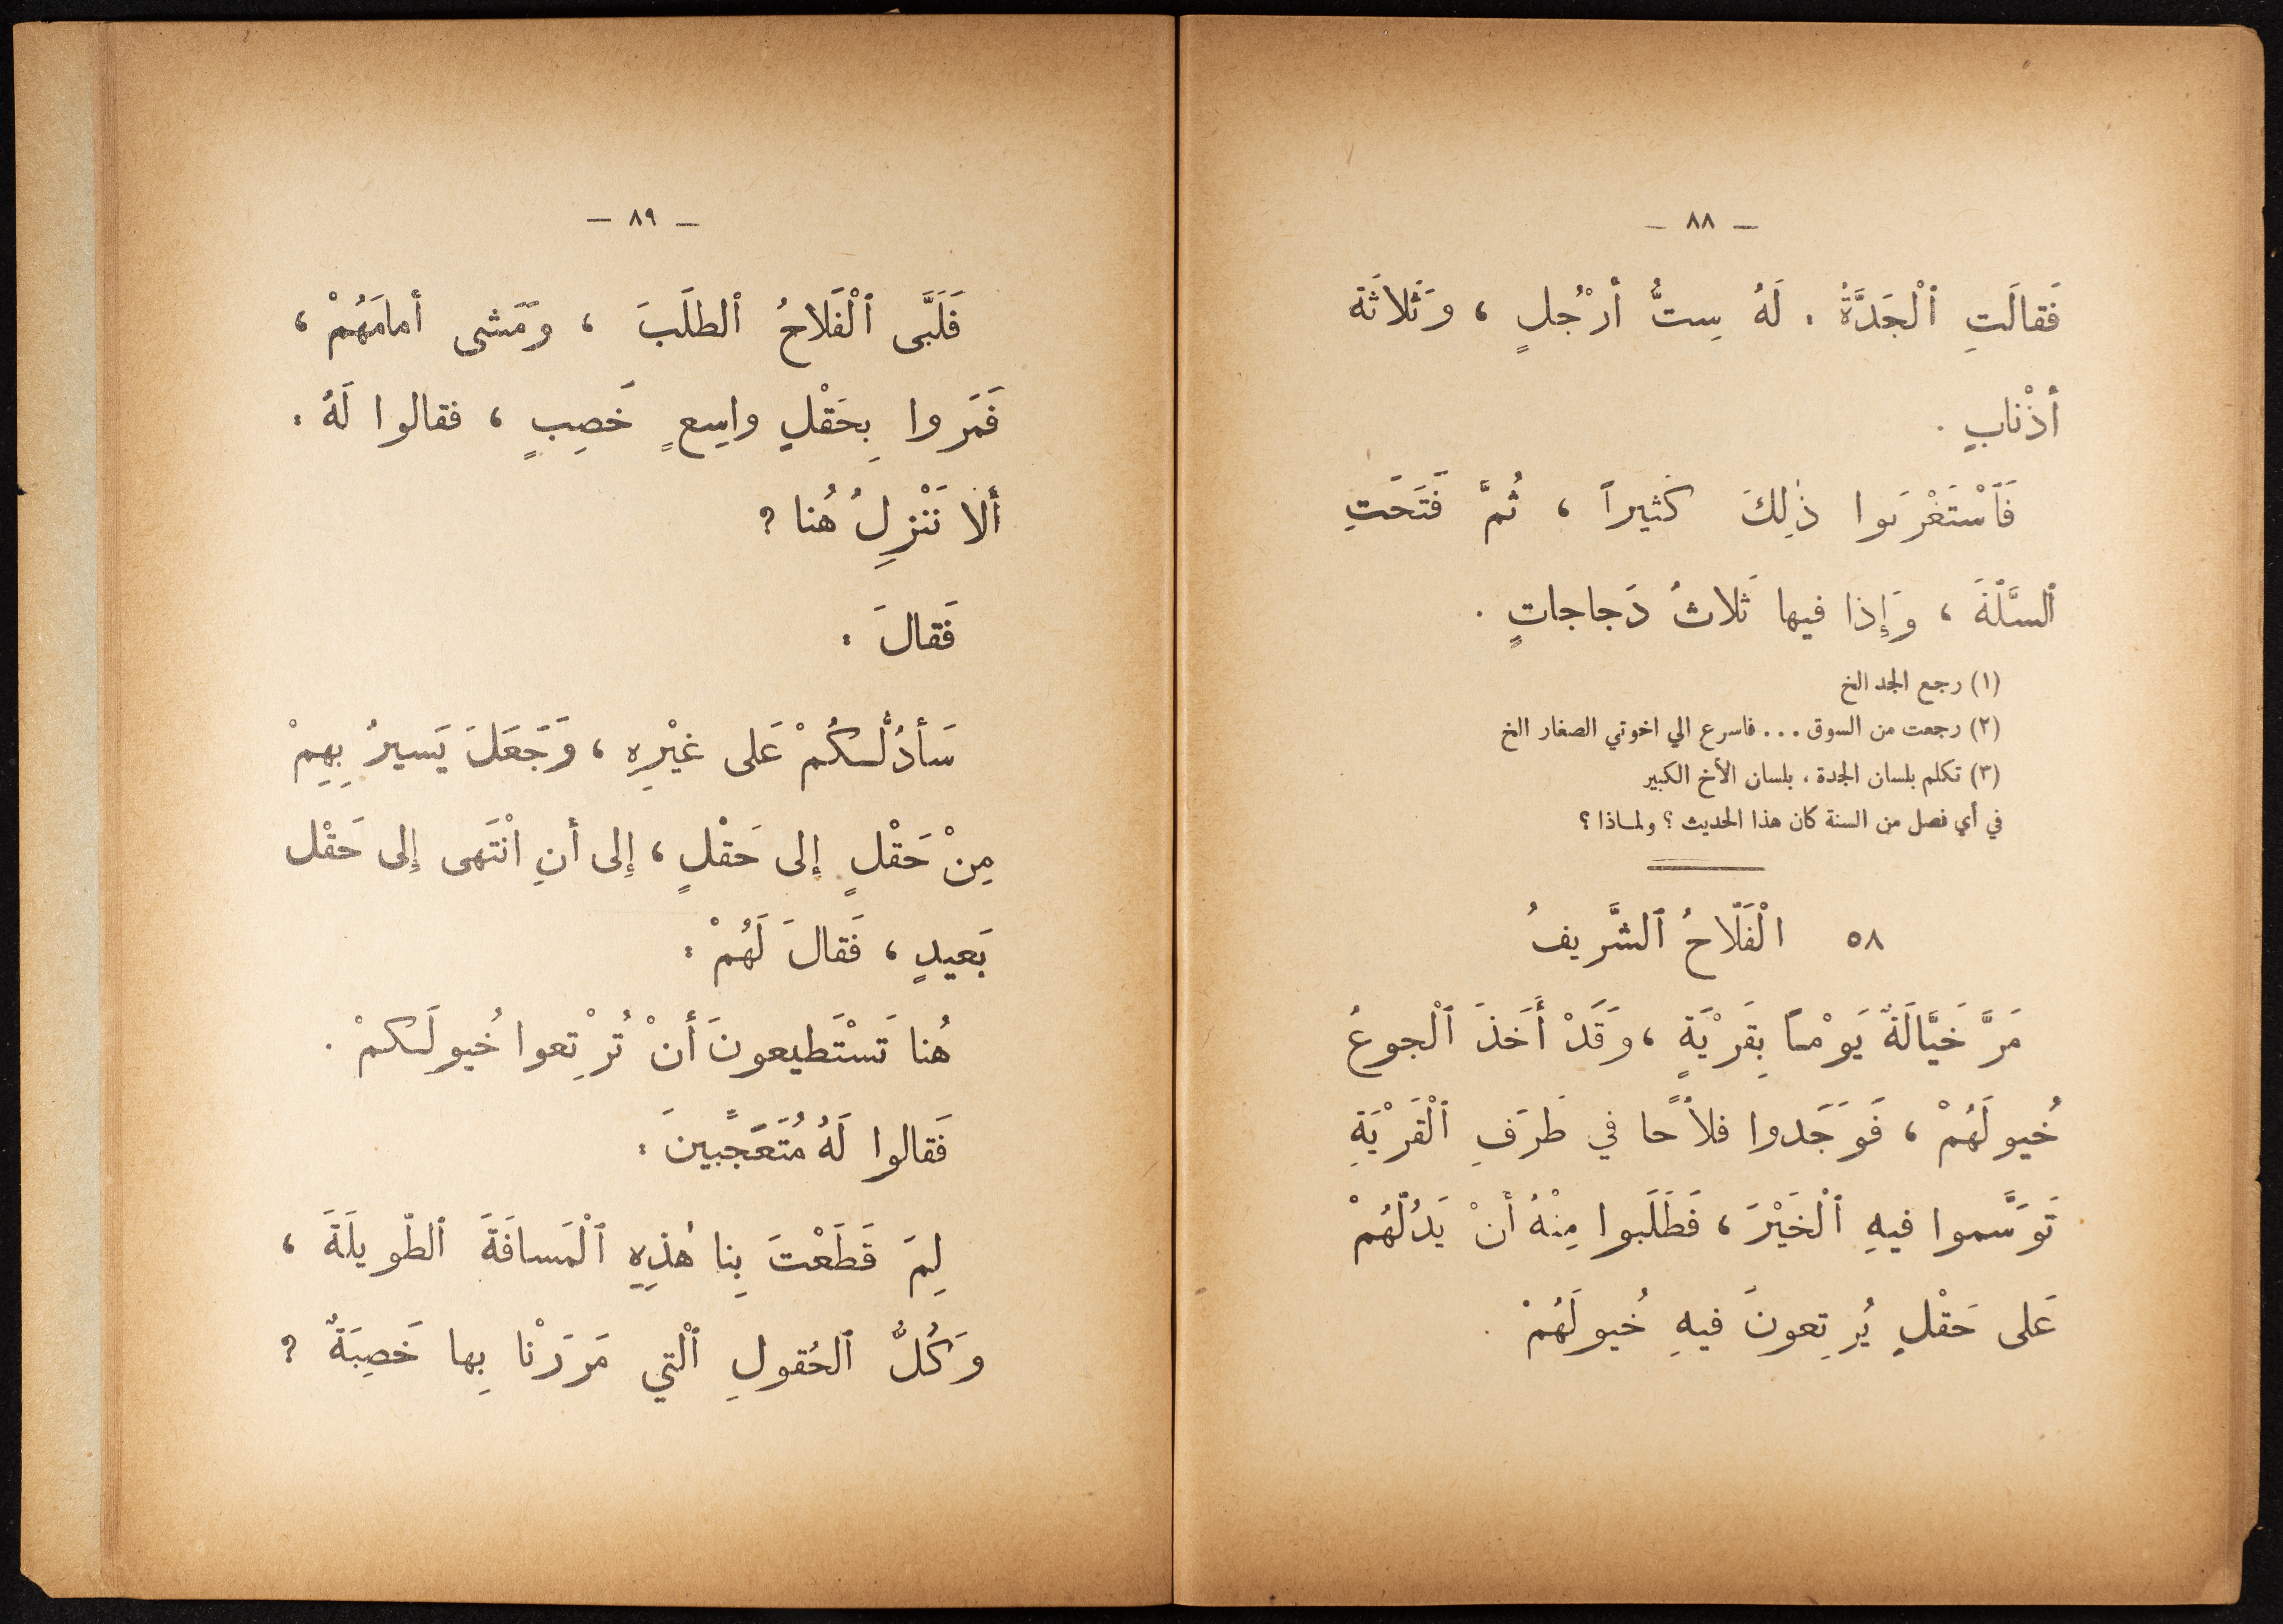 — ٨٨ —
فَقالَتِ ٱلْجَدَّةُ : لَهُ سِتُّ أرْجُلٍ ، وَثَلاثَة
أذْنابٍ .
فَٱسْتَغْرَبوا ذٰلِكَ كَثيراً ، ثُمَّ فَتَحَتِ
ٱلسَّلَّةَ ، وَإِذا فيها ثَلاثُ دَجاجاتٍ .
(١) رجع الجد الخ
(٢) رجعت من السوق ... فاسرع الي اخوتي الصغار الخ
(٣) تكلم بلسان الجدة ، بلسان الأخ الكبير
في أي فصل من السنة كان هذا الحديث ؟ ولماذا ؟
٥٨ الْفَلّاحُ ٱلشَّريفُ
مَرَّ خَيَّالَةٌ يَوْماً بِقَرْيَةٍ ، وَقَدْ أَخَذَ ٱلْجوعُ
خُيولَهُمْ ، فَوَجَدوا فلاحًا في طَرَفِ ٱلْقَرْيَةِ
تَوَسَّموا فيهِ ٱلْخَيْرَ ، فَطَلَبوا مِنْهُ أنْ يَدُلَّهُمْ
عَلى حَقْلٍ يُرتِعونَ فيهِ خُيولَهُمْ .
— ٨٩ —
فَلَبَّى ٱلْفَلاحُ ٱلطلَبَ ، وَمَشى أمامَهُمْ ،
فَمَروا بِحَقْلٍ واسِعٍ خَصِبٍ ، فقالوا لَهُ :
ألا نَنْزِلُ هُنا ؟
فَقالَ :
سَأدُلُّكُمْ عَلى غيْرِهِ ، وَجَعَلَ يَسيرُ بِهِمْ
مِنْ حَقْلٍ إلى حَقْلٍ ، إِلى أنِ انْتَهى إِلى حَقْل
بَعيدٍ ، فَقالَ لَهُمْ :
هُنا تَسْتَطيعونَ أنْ تُرْتِعوا خُيولَكمْ .
فَقالوا لَهُ مُتَعَجِّبينَ :
لِمَ قَطَعْتَ بِنا هٰذِهِ ٱلْمَسافَةَ ٱلطّويلَةَ ،
وَكُلُّ ٱلحُقولِ ٱلْتي مَرَرْنا بِها خَصِبَةٌ ؟